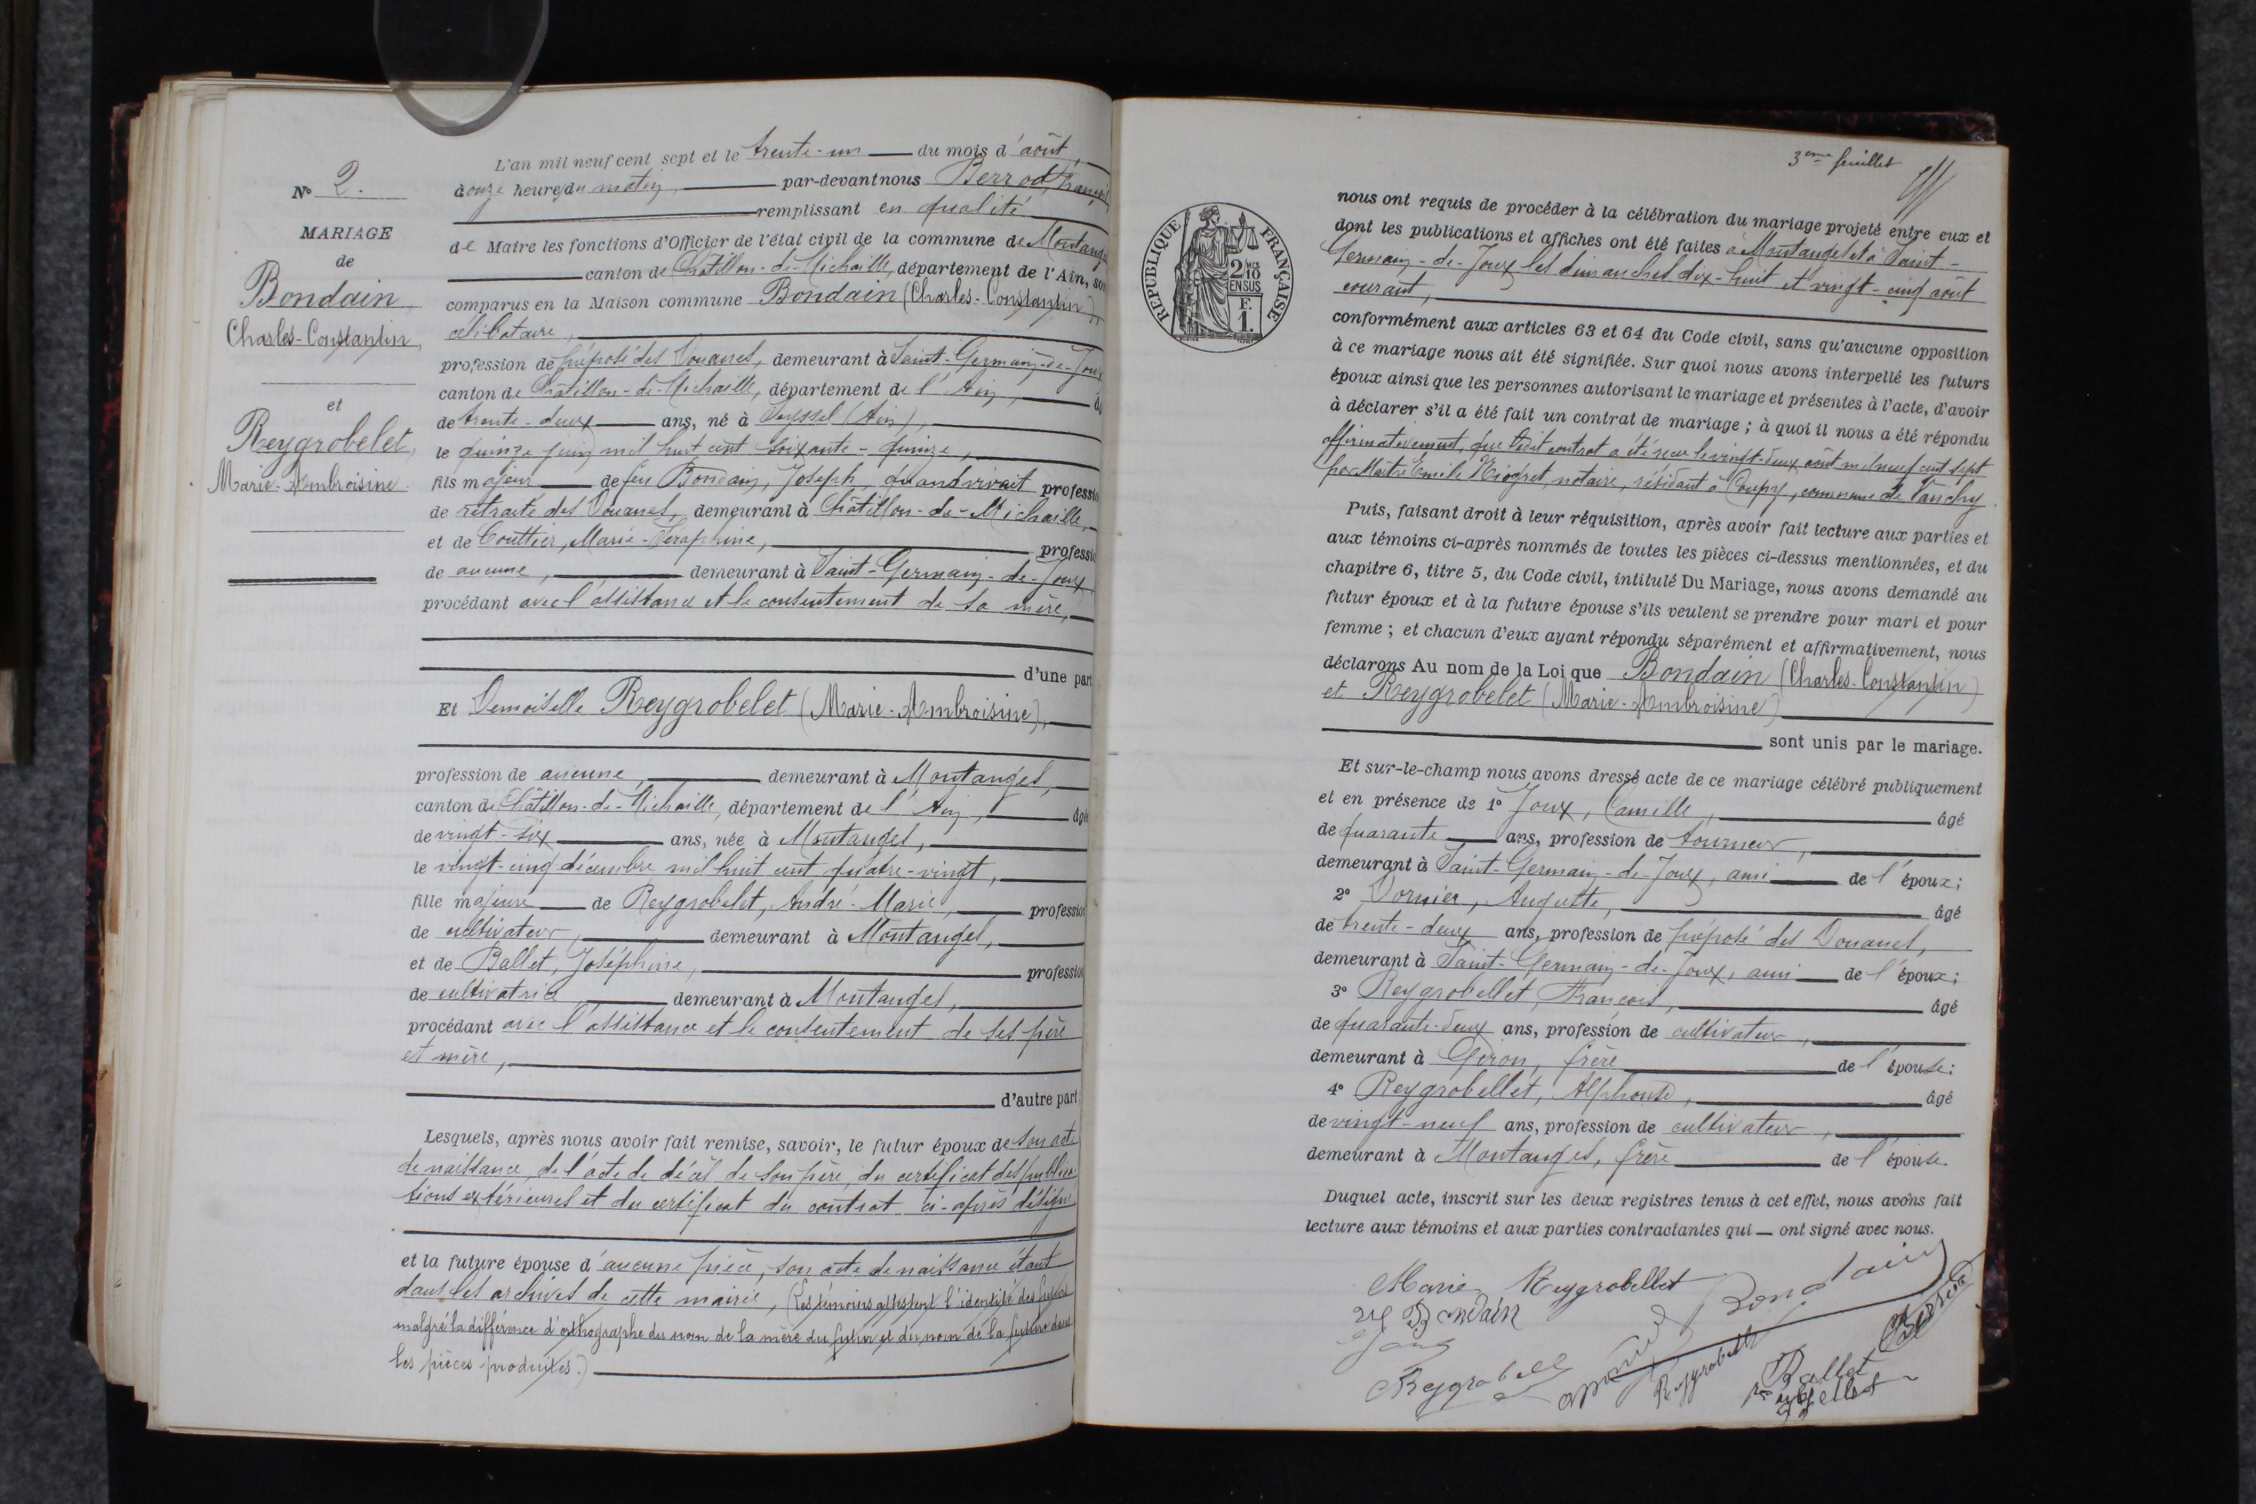 N° 2.
MARIAGE
de
Bondain
Charles-Constantin,
et
Reygrobelet,
Marie-Ambroisine.
L'an mil neuf cent sept et le trente-un du mois d'août,
à onze heures du matin, par-devant nous Berrod, François,
remplissant en qualité
de Maire les fonctions d'Officier de l'état civil de la commune de Montanges
canton de Châtillon-de-Michaille, département de l'Ain, sont
comparus en la Maison commune Bondain (Charles-Constantin),
célibataire,
profession de préposé des Douanes, demeurant à Saint-Germain-de-Joux
canton de Châtillon-de-Michaille, département de l'Ain, âgé
de trente-deux ans, né à Seyssel (Ain),
le quinze juin mil huit cent soixante-quinze,
fils majeur de feu Bondain, Joseph, quand vivait profession
de retraité des Douanes, demeurant à Châtillon-de-Michaille,
et de Couttier, Marie-Séraphine, profession
de aucune, demeurant à Saint-Germain-de-Joux,
procédant avec l'assistance et le consentement de sa mère,
d'une part
Et Demoiselle Reygrobelet (Marie-Ambroisine),
profession de aucune, demeurant à Montanges,
canton de Châtillon-de-Michaille, département de l'Ain, âgée
de vingt-six ans, née à Montanges,
le vingt-cinq décembre mil huit cent quatre-vingt,
fille majeure de Reygrobelet, André-Marie, profession
de cultivateur, demeurant à Montanges,
et de Ballet, Joséphine, profession
de cultivatrice, demeurant à Montanges,
procédant avec l'assistance et le consentement de ses père
et mère,
d'autre part.
Lesquels, après nous avoir fait remise, savoir, le futur époux de son acte
de naissance, de l'acte de décès de son père, du certificat des publica
tions extérieures et du certificat du contrat ci-après désigné
et la future épouse d'aucune pièce, son acte de naissance étant
dans les archives de cette mairie, (Les témoins attestent l'identité des futurs
malgré la différence d'orthographe du nom de la mère du futur et du nom de la future dans
les pièces produites.)
3eme feuillet
RÉPUBLIQUE FRANÇAISE
2/10
EN SUS
F.
1.
nous ont requis de procéder à la célébration du mariage projeté entre eux et
dont les publications et affiches ont été faites à Montanges et à Saint-
Germain-de-Joux les dimanches dix-huit et vingt-cinq août
courant,
conformément aux articles 63 et 64 du Code civil, sans qu'aucune opposition
à ce mariage nous ait été signifiée. Sur quoi nous avons interpellé les futurs
époux ainsi que les personnes autorisant le mariage et présentes à l'acte, d'avoir
à déclarer s'il a été fait un contrat de mariage ; à quoi il nous a été répondu
affirmativement, que ledit contrat a été reçu le vingt-deux août mil neuf cent sept
par Maître Emile Niogret, notaire, résidant à Coupy, commune de Vanchy.
Puis, faisant droit à leur réquisition, après avoir fait lecture aux parties et
aux témoins ci-après nommés de toutes les pièces ci-dessus mentionnées, et du
chapitre 6, titre 5, du Code civil, intitulé Du Mariage, nous avons demandé au
futur époux et à la future épouse s'ils veulent se prendre pour mari et pour
femme ; et chacun d'eux ayant répondu séparément et affirmativement, nous
déclarons Au nom de la Loi que Bondain (Charles-Constantin)
et Reygrobelet (Marie-Ambroisine)
sont unis par le mariage.
Et sur-le-champ nous avons dressé acte de ce mariage célébré publiquement
et en présence de 1° Joux, Camille, âgé
de quarante ans, profession de tourneur,
demeurant à Saint-Germain-de-Joux, ami de l'époux ;
2° Dornier, Auguste, âgé
de trente-deux ans, profession de préposé des Douanes,
demeurant à Saint-Germain-de-Joux, ami de l'époux ;
3° Reygrobellet, François, âgé
de quarante-deux ans, profession de cultivateur,
demeurant à Giron, frère de l'épouse ;
4° Reygrobellet, Alphonse, âgé
de vingt-neuf ans, profession de cultivateur,
demeurant à Montanges, frère de l'épouse.
Duquel acte, inscrit sur les deux registres tenus à cet effet, nous avons fait
lecture aux témoins et aux parties contractantes qui ont signé avec nous.
Marie Reygrobellet
Bondain
Bondain
Joux
Reygrobell
Dornier
Reygrobellet
Ballet
Berrod